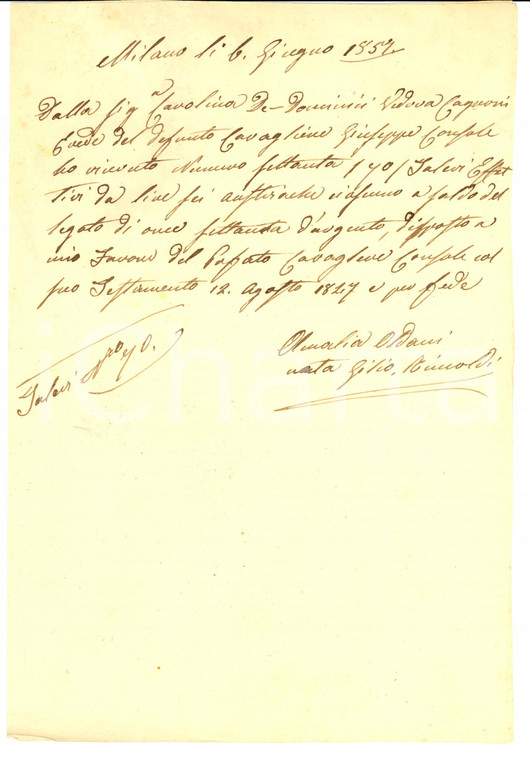 Milano li 6. Giugno 1857.
Dalla Sig.a Carolina De-Dominici Vedova Cagnoni
Erede del defunto Cavagliere Giuseppe Console
ho ricevuto Numero settanta /70/ Taleri Effet
tivi da lire sei austriache ciascuno a saldo del
legato di once settanta d'argento, disposto a
mio favore del Preffato Cavagliere Console col
suo Testamento 12. Agosto 1847 e per fede
Amalia Oldani
nata Gilio. Rimoldi
Taleri Nro 70.
iCharta